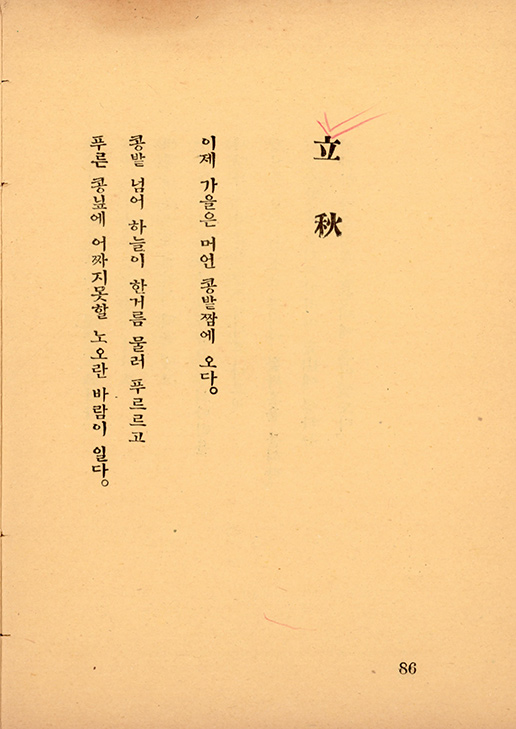 立秋
이제 가을은 머언 콩밭짬에 오다。
콩밭 넘어 하늘이 한거름 물러 푸르르고
푸른 콩닢에 어짜지못할 노오란 바람이 일다。
86